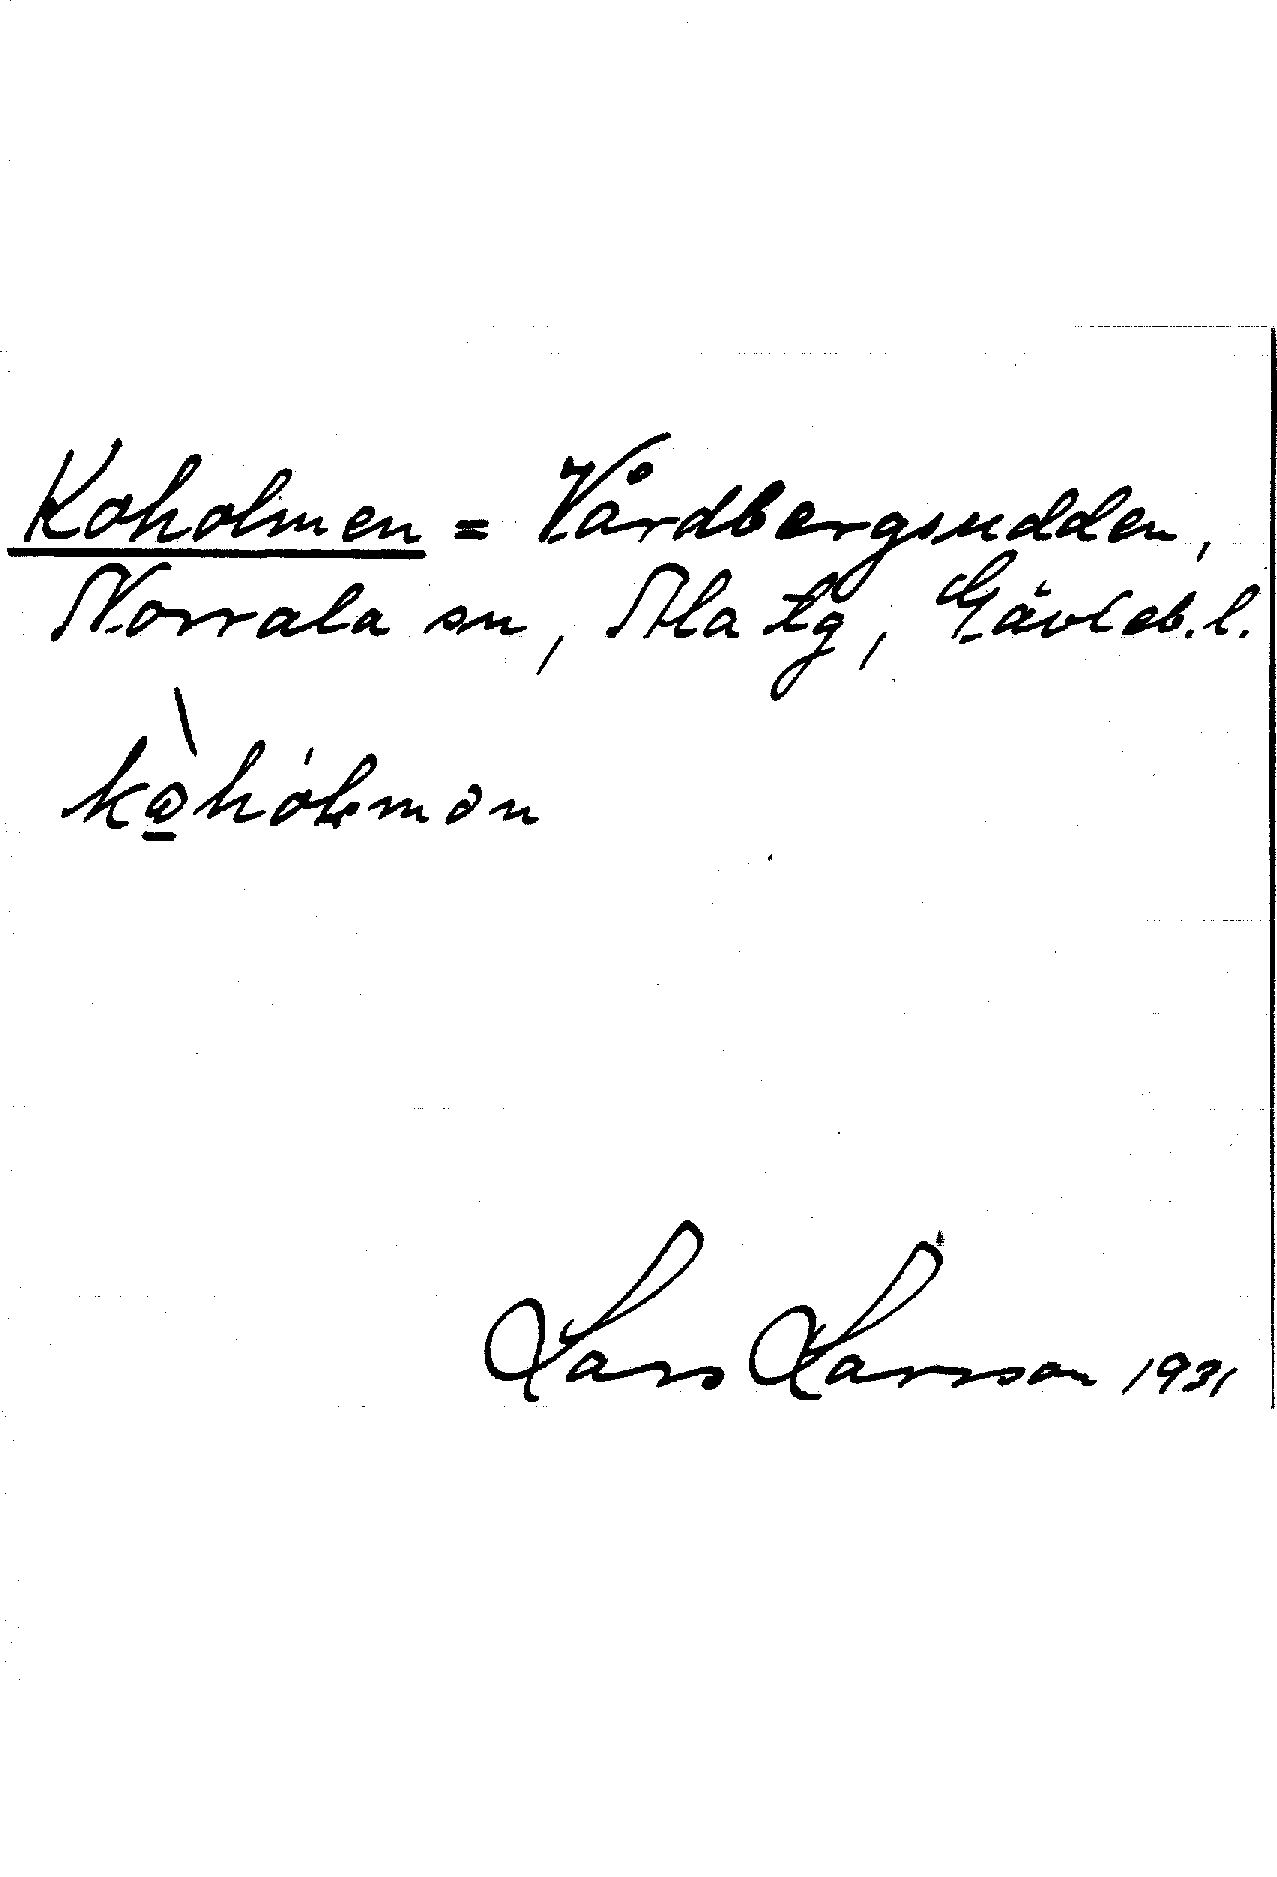 Koholmen = Vårdbergsudden,
Norrala sn, Ala tg, Gävleb. l.
Lars Larsson 1931